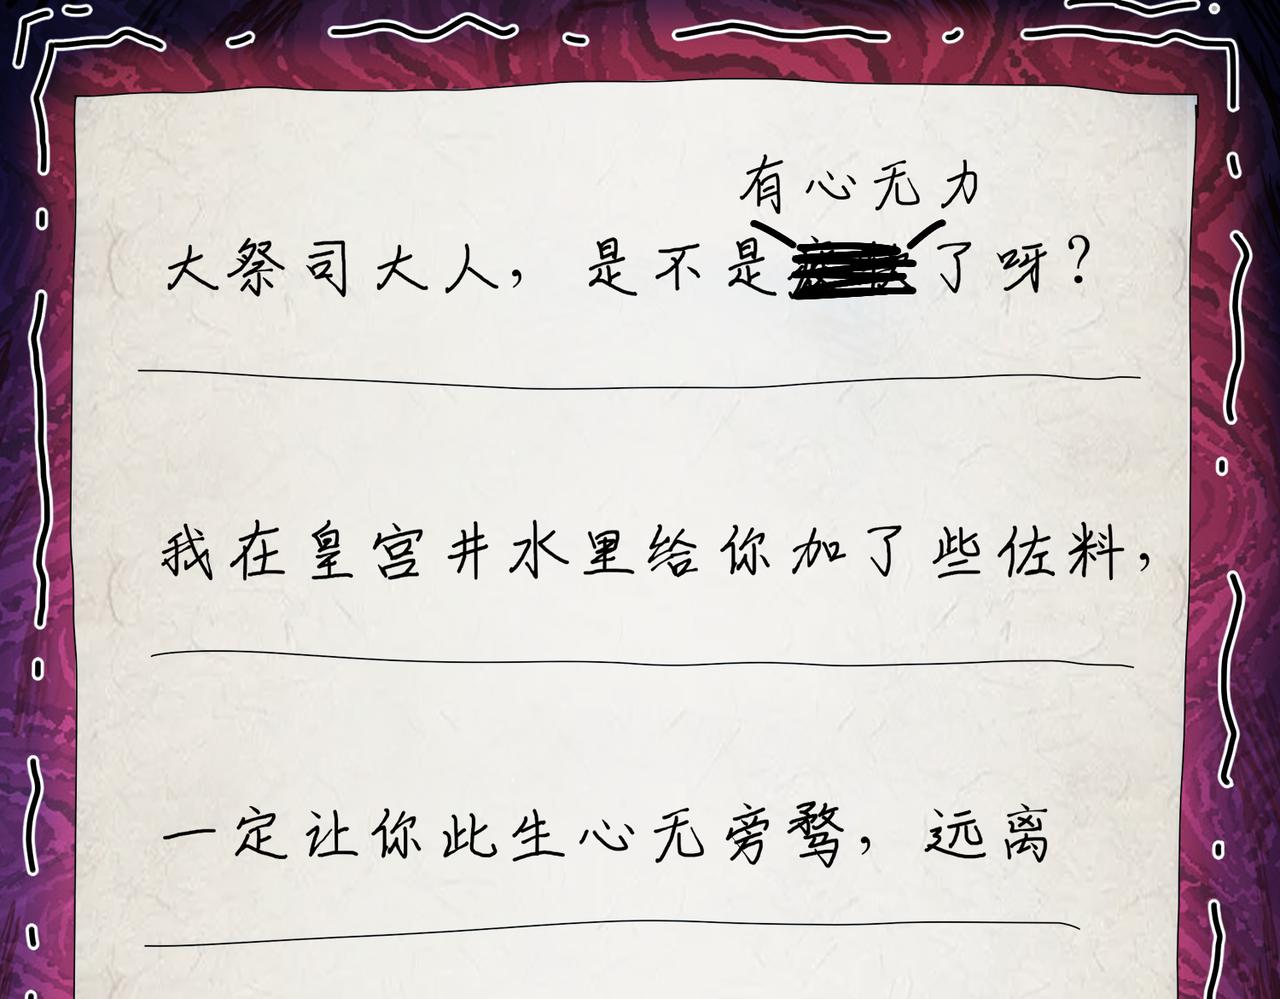 有心无力
大祭司大人，是不是了呀？
我在皇宫井水里给你加了些佐料，
一定让你此生心无旁鹜，远离